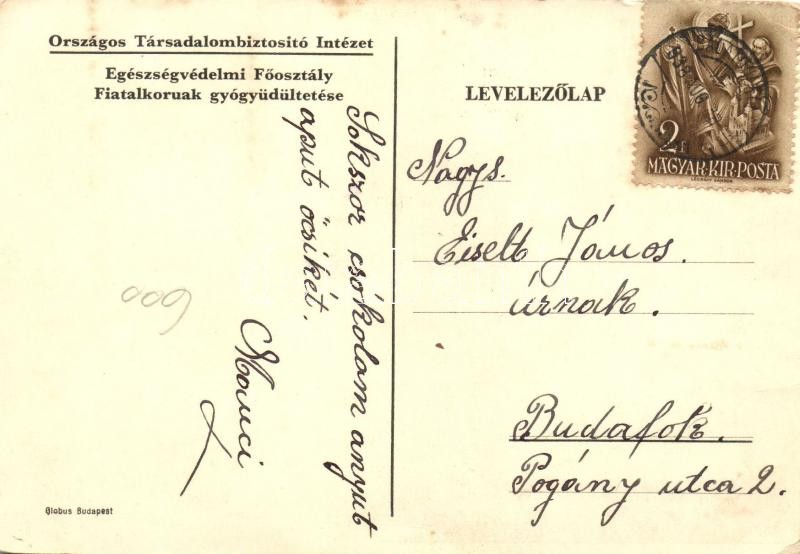 Országos Társadalombiztositó Intézet
Egészségvédelmi Főosztály
Fiatalkoruak gyógyüdültetése
Sokszor csókolom anyut
aput öcsikét.
Manci
600
Globus Budapest
LEVELEZŐLAP
2f
MAGYAR·KIR·POSTA
LÉGRÁDY SÁNDOR
Nagys.
Eiselt János.
úrnak.
Budafok.
Pogány utca 2.